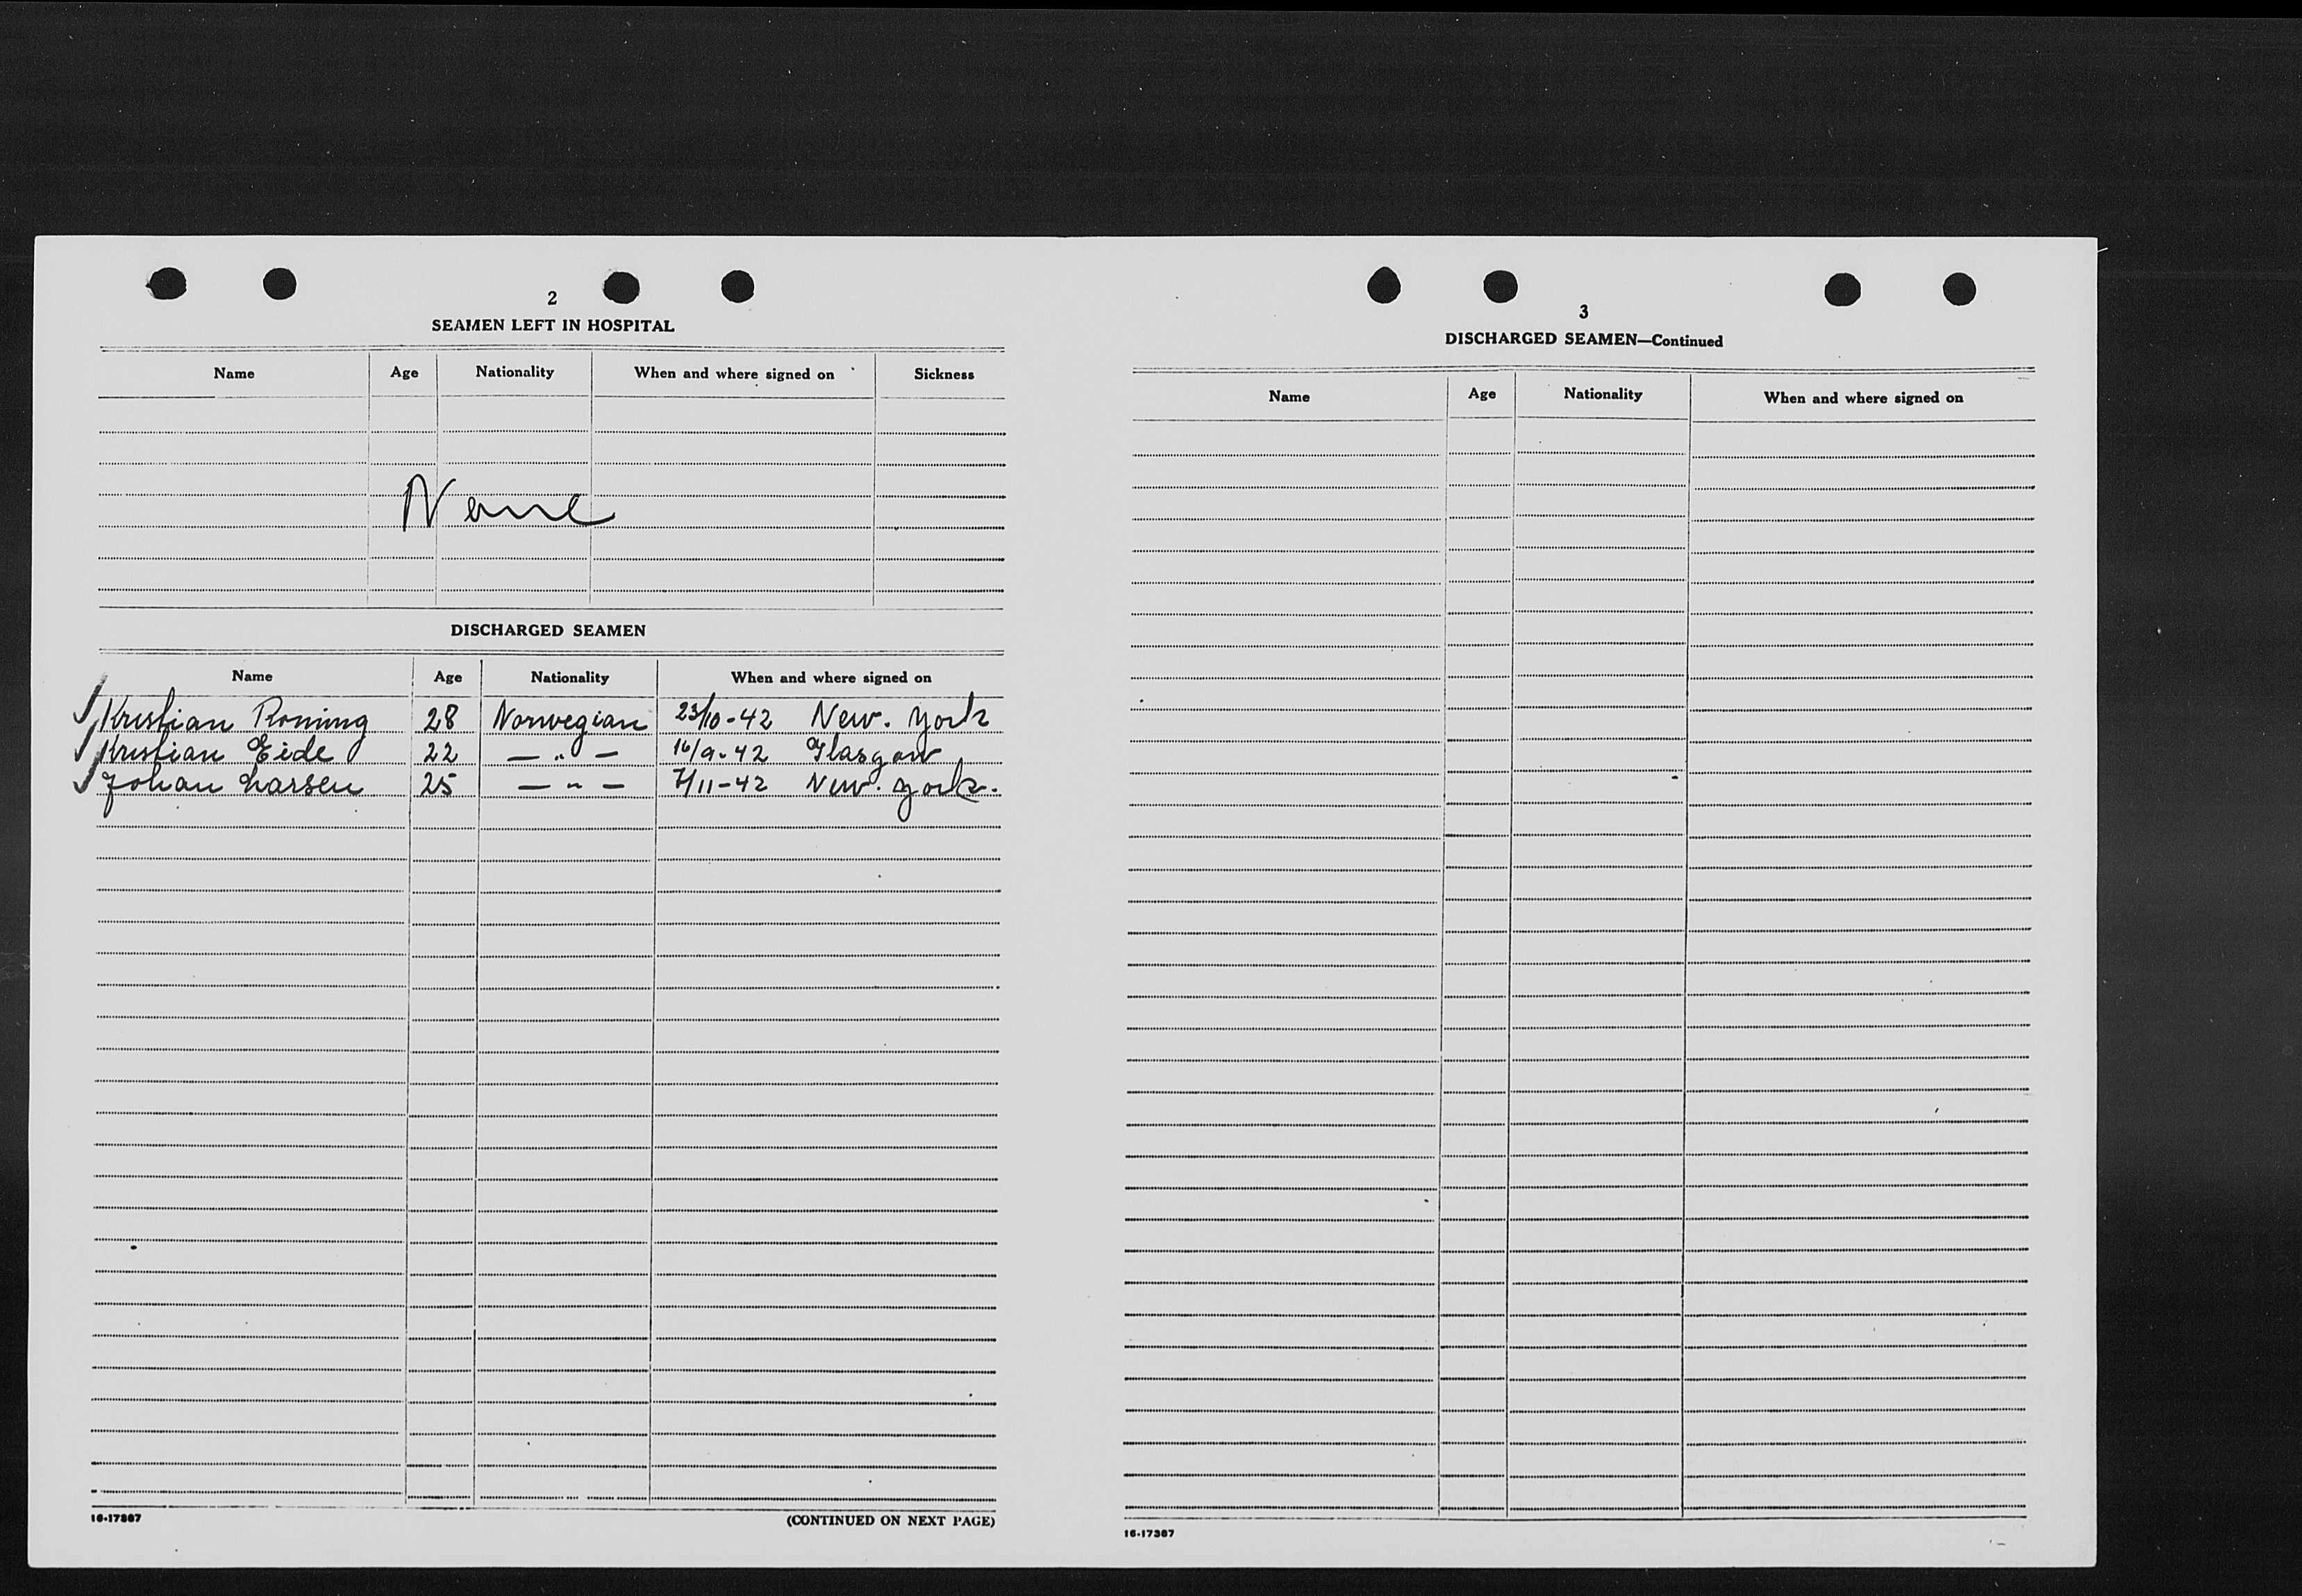 2
SEAMEN LEFT IN HOSPITAL
Name Age Nationality When and where signed on Sickness
None
DISCHARGED SEAMEN
Name Age Nationality When and where signed on
Kristian Roning 28 Norwegian 23/10-42 New. York
Kristian Eide 22 — " — 16/9-42 Glasgow
Johan Larsen 25 — " — 7/11-42 New. York.
16-17387
(CONTINUED ON NEXT PAGE)
3
DISCHARGED SEAMEN—Continued
Name Age Nationality When and where signed on
16-17387